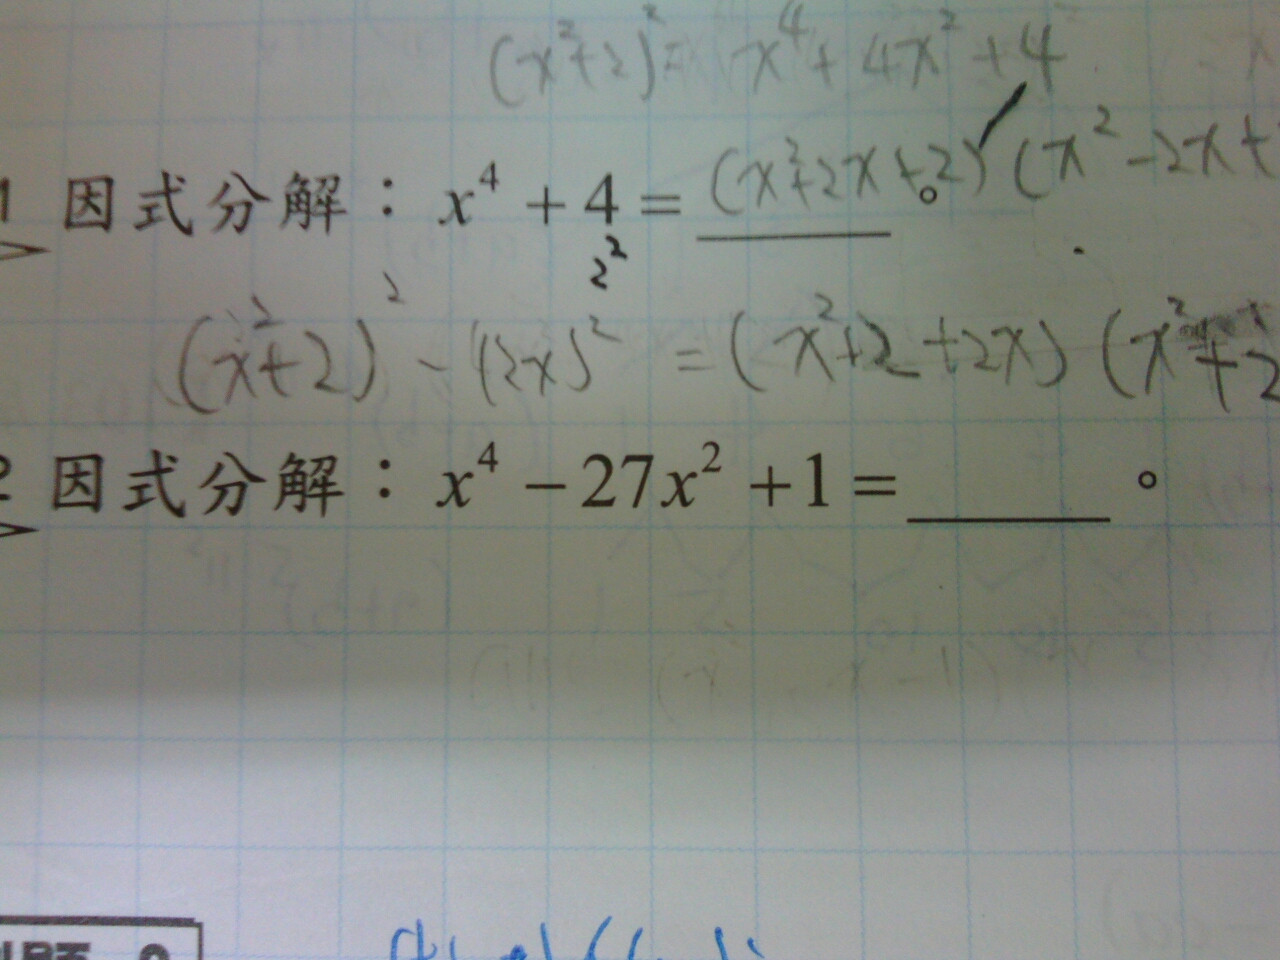 (x²+2)² = x⁴ + 4x² + 4
1 因式分解：x⁴ + 4 = (x²+2x+2) (x² -2x+ 。
2²
(x²+2)² - (2x)² = (x²+2+2x) (x²+2
2 因式分解：x⁴ − 27x² + 1 = ______ 。